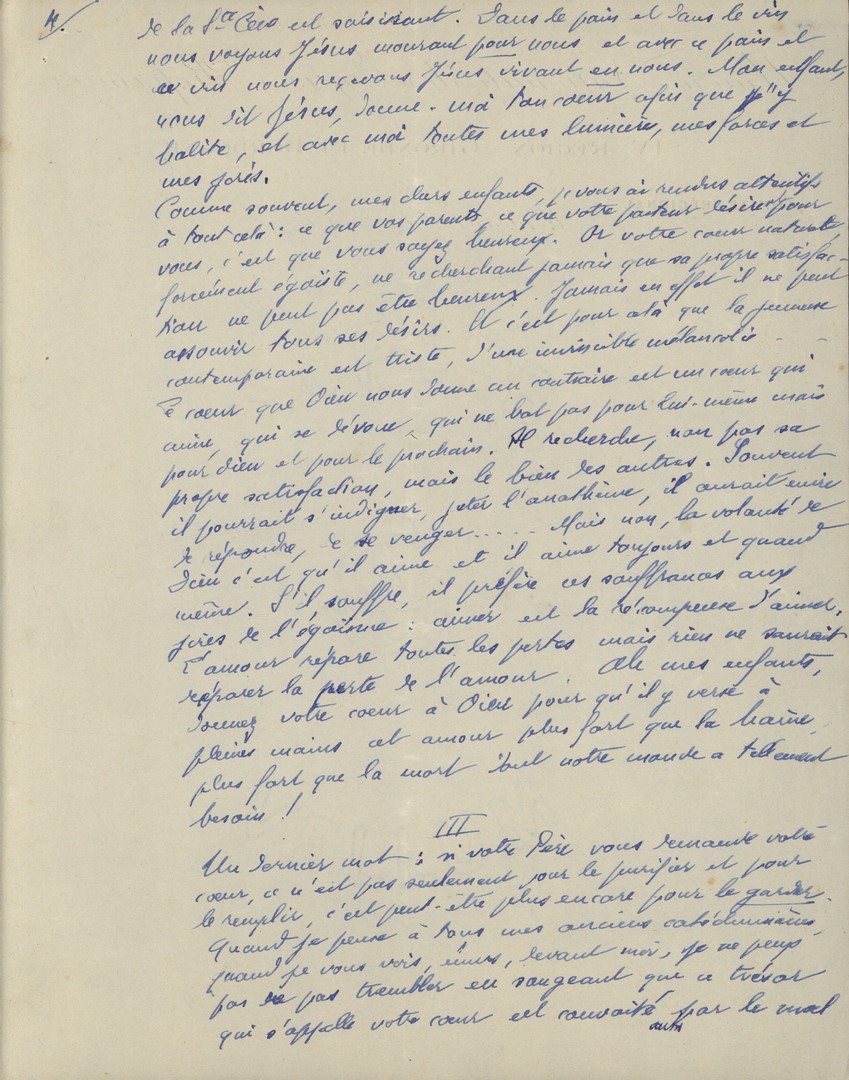 4/.
de la Ste Cène est saisissant. Dans le pain et dans le vin
nous voyons Jésus mourant pour nous et avec ce pain et
ce vin nous recevons Jésus vivant en nous. Mon enfant,
nous dit Jésus, donne-moi ton coeur afin que j'y
habite, et avec moi toutes mes lumières, mes forces et
mes joies.
Comme souvent, mes chers enfants, je vous ai rendus attentifs
à tout cela : ce que vos parents, ce que votre pasteur désirent pour
vous, c'est que vous soyez heureux. Or votre coeur naturel,
forcément égoïste, ne recherchant jamais que sa propre satisfac-
tion ne peut pas être heureux. Jamais en effet il ne peut
assouvir tous ses désirs. Et c'est pour cela que la jeunesse
contemporaine est triste, d'une invincible mélancolie - -
Le coeur que Dieu nous donne au contraire est un coeur qui
aime, qui se dévoue, qui ne bat pas pour lui-même mais
pour Dieu et pour le prochain. Il recherche, non pas sa
propre satisfaction, mais le bien des autres. Souvent
il pourrait s'indigner, jeter l'anathème, il aurait envie
de répondre, de se venger..... Mais non, la volonté de
Dieu c'est qu'il aime et il aime toujours et quand
même. S'il souffre, il préfère ces souffrances aux
joies de l'égoïsme : aimer est la récompense d'aimer.
L'amour répare toutes les pertes mais rien ne saurait
réparer la perte de l'amour. Oh mes enfants,
donnez votre coeur à Dieu pour qu'il y verse à
pleines mains cet amour plus fort que la haine,
plus fort que la mort dont notre monde a tellement
besoin !
III
Un dernier mot : si votre Père vous demande votre
coeur, ce n'est pas seulement pour le purifier et pour
le remplir, c'est peut-être plus encore pour le garder.
Quand je pense à tous mes anciens catéchumènes,
quand je vous vois, émus, devant moi, je ne peux
pas ne pas trembler en songeant que ce trésor
qui s'appelle votre coeur est convoité aussi par le mal